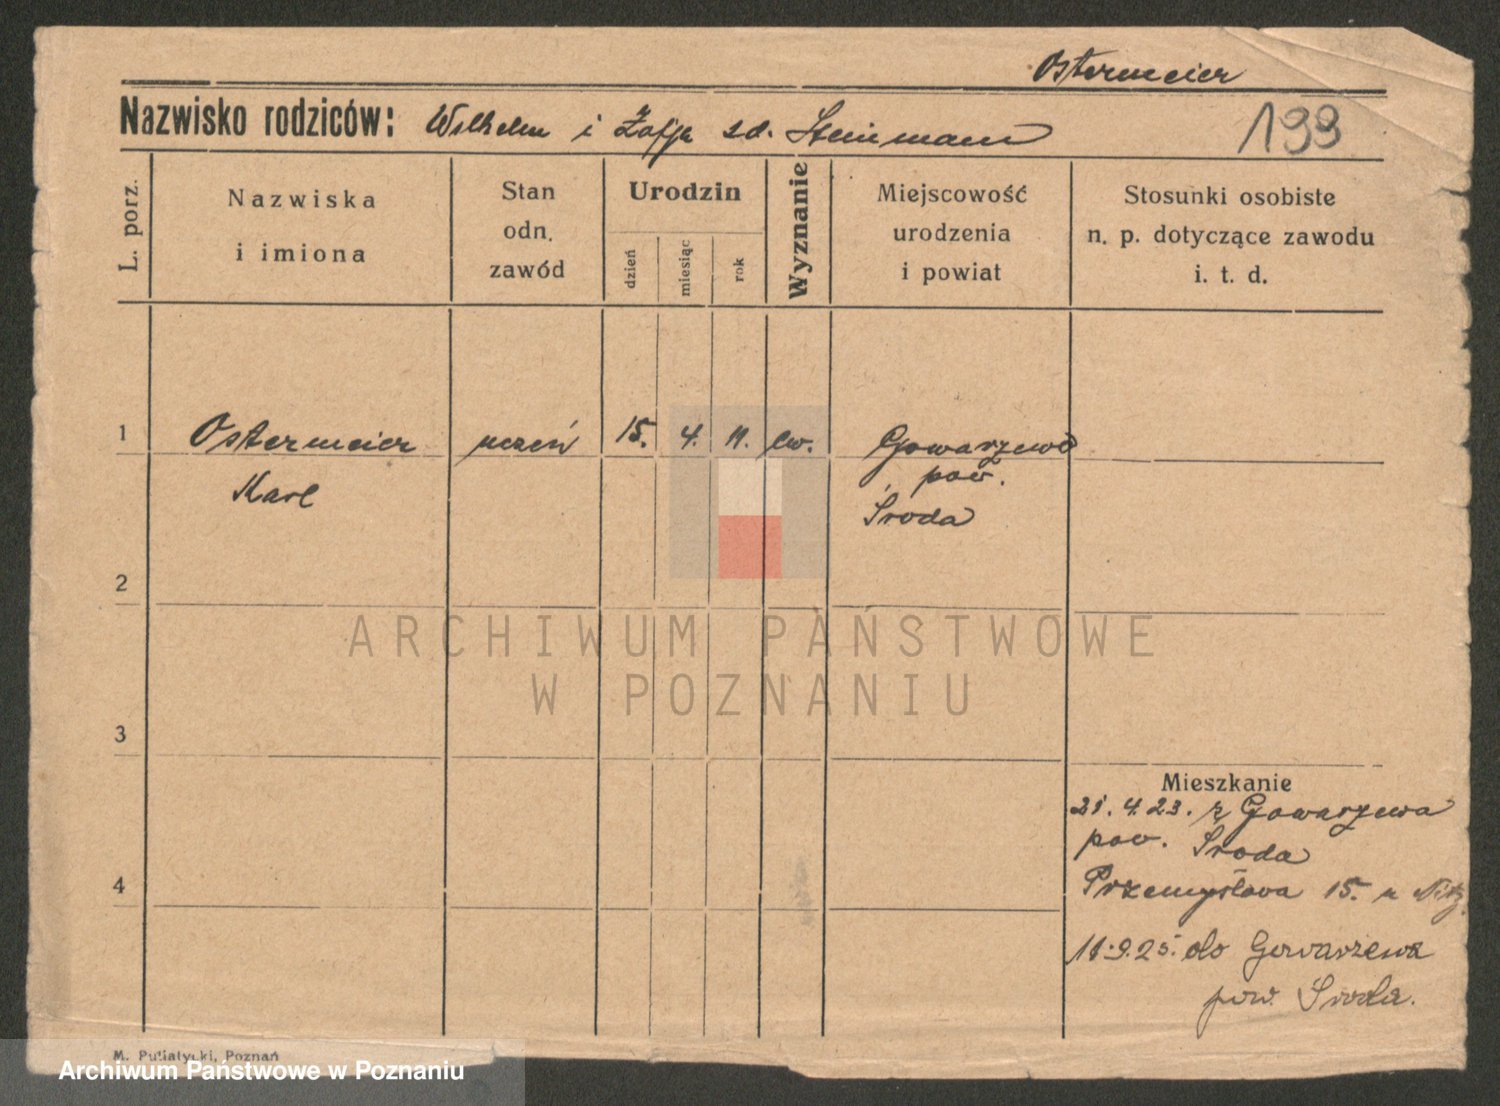 Ostermeier
Nazwisko rodziców: Wilhelm i Zofja zd. Steinmann
199
L. porz.
Nazwiska
i imiona
Stan
odn.
zawód
Urodzin
dzień
miesiąc
rok
Wyznanie
Miejscowość
urodzenia
i powiat
Stosunki osobiste
n. p. dotyczące zawodu
i. t. d.
1 Ostermeier uczeń 15. 4. 11. ew. Gowarzewo
pow.
Karl
Środa
2
ARCHIWUM PAŃSTWOWE
W POZNANIU
3
Mieszkanie
21. 4. 23. z Gowarzewa
pow. Środa
4
Przemysława 15. u
11.9.25. do Gowarzewa
pow. Środa.
M. Putiatycki, Poznań
Archiwum Państwowe w Poznaniu